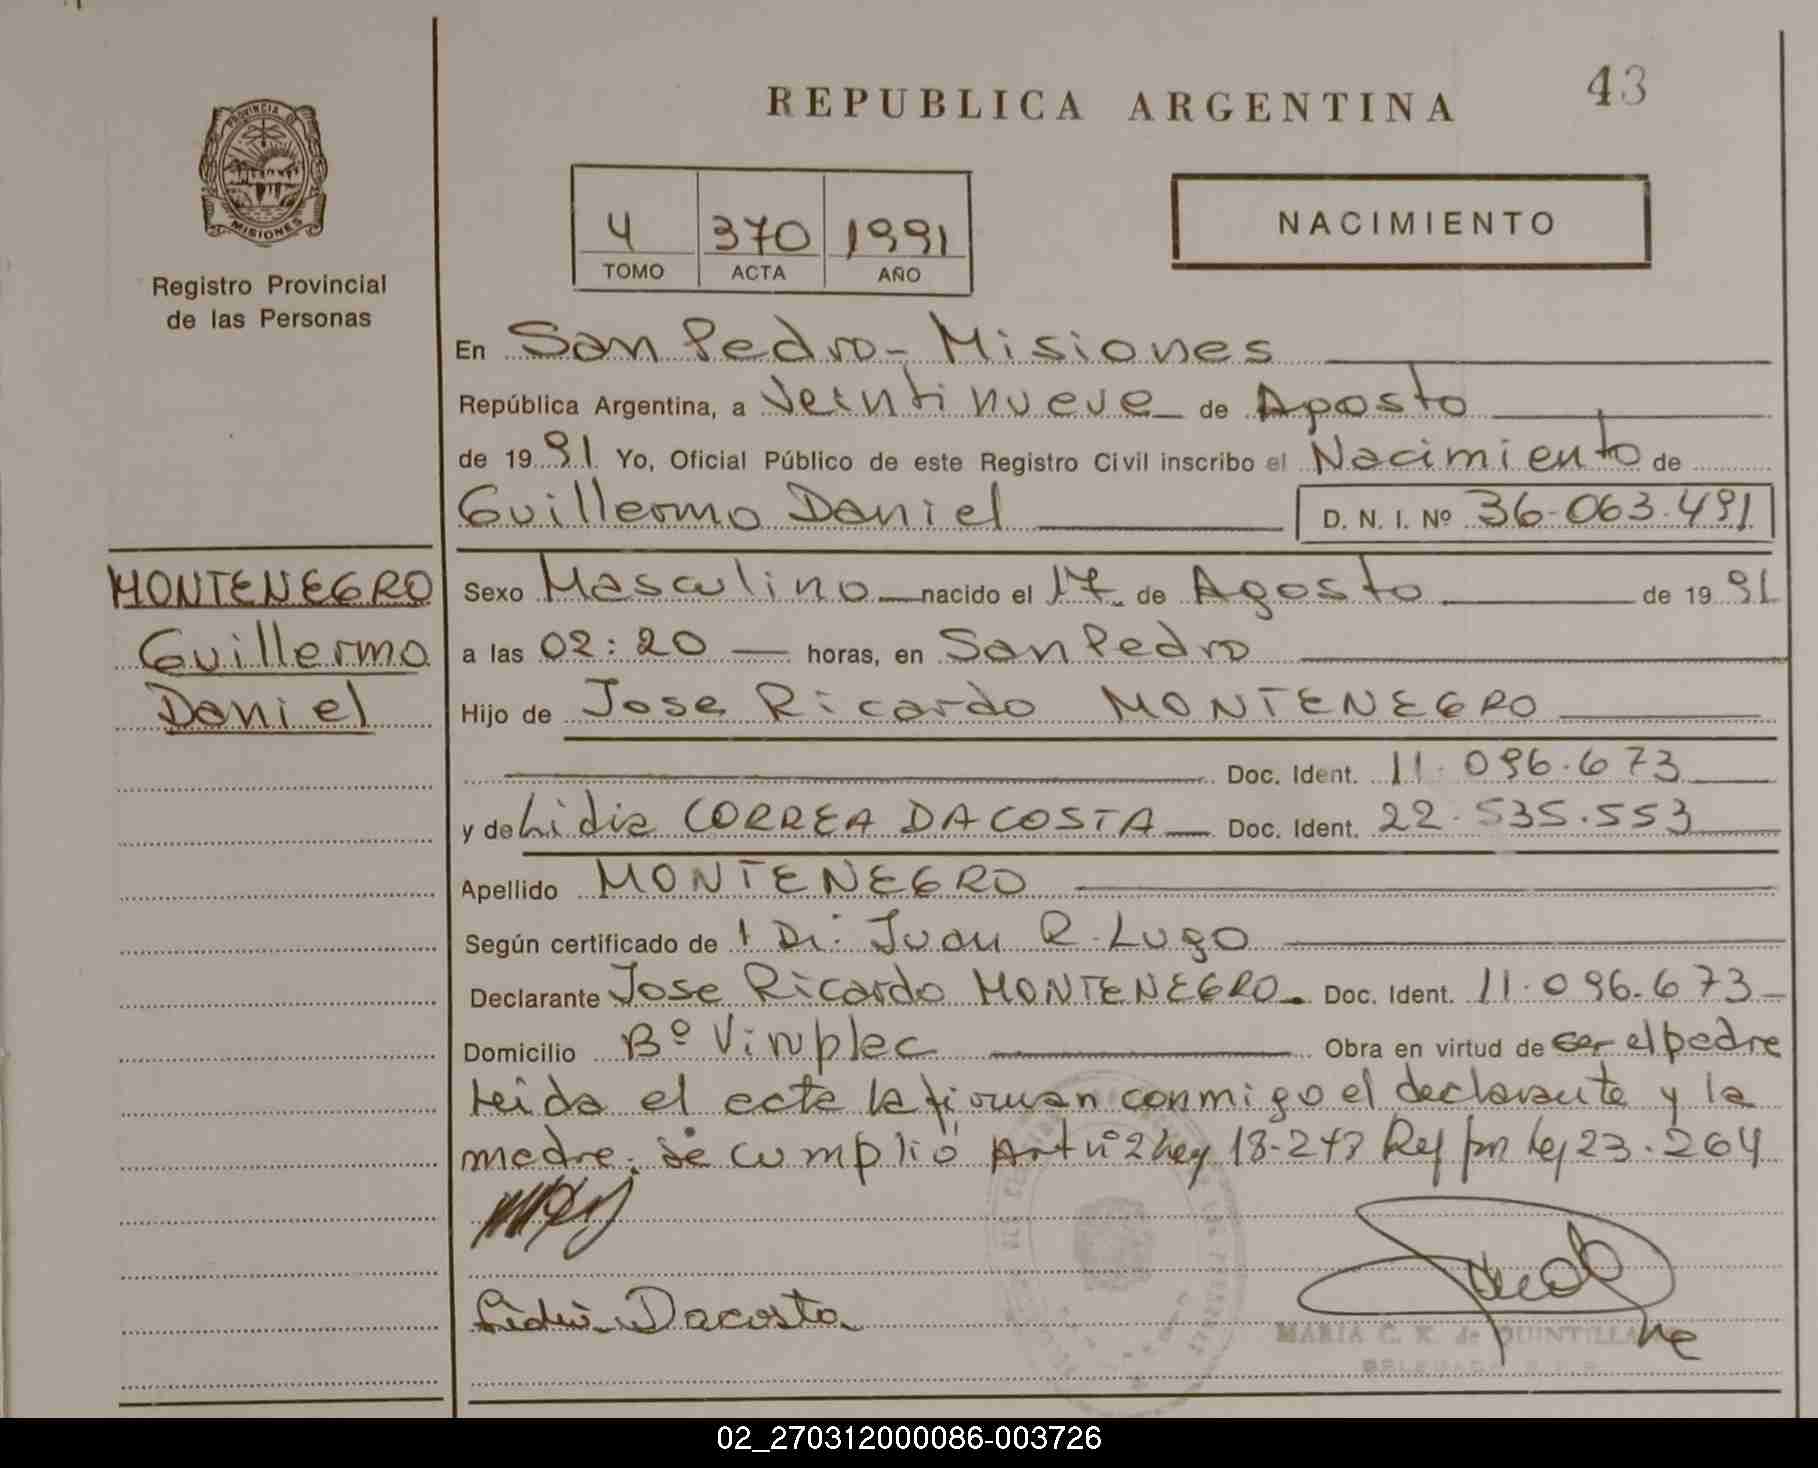 43
REPUBLICA ARGENTINA
PROVINCIA DE
MISIONES
Registro Provincial
de las Personas
4 370 1991
TOMO ACTA AÑO
NACIMIENTO
En San Pedro - Misiones
República Argentina, a Veintinueve de Agosto
de 1991 Yo, Oficial Público de este Registro Civil inscribo el Nacimiento de
Guillermo Daniel D. N. I. Nº 36-063.491
MONTENEGRO
Guillermo
Daniel
Sexo Masculino nacido el 17 de Agosto de 1991
a las 02:20 horas, en San Pedro
Hijo de Jose Ricardo MONTENEGRO
Doc. Ident. 11.096.673
y de Lidia CORREA DACOSTA Doc. Ident. 22.535.553
Apellido MONTENEGRO
Según certificado de Juan R. Lugo
Declarante Jose Ricardo MONTENEGRO. Doc. Ident. 11.096.673
Domicilio Bº Vinplec Obra en virtud de ser el padre
Leida el acta la firman conmigo el declarante y la
madre. Se cumplió Art nº 2 Ley Ref por ley 23.264
Lidia Dacosta
MARIA C. K. de QUINTILLA
DELEGADA
02_270312000086-003726